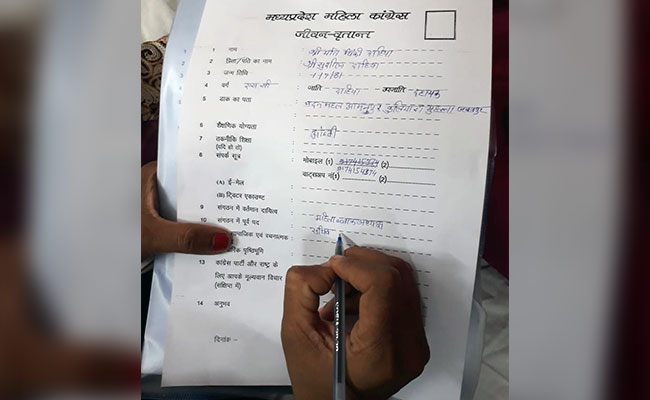 मध्यप्रदेश महिला कांग्रेस
जीवन-वृतान्त
1 नाम : श्री मति
2 पिता/पति का नाम : श्री सुशील दाहिया
3 जन्म तिथि : 1/7/81
4 वर्ग जाति दाहिया उपजाति
5 डाक का पता : मदन महल आमनपुर
6 शैक्षणिक योग्यता :
7 तकनीकि शिक्षा : पांचवी
(यदि हो तो)
8 संपर्क सूत्र : मोबाइल (1) (2)
वाट्सअप नं(1) (2)
(A) ई-मेल :
(B) ट्विटर एकाउण्ट :
9 संगठन में वर्तमान दायित्व :
10 संगठन में पूर्व पद : महिला ब्लाक अध्यक्ष
सामाजिक एवं रचनात्मक : सचिव
पृष्ठिभूमि
13 कांग्रेस पार्टी और राष्ट्र के :
लिए आपके मूल्यवान विचार
(संक्षिप्त में)
14 अनुभव :
दिनांक -